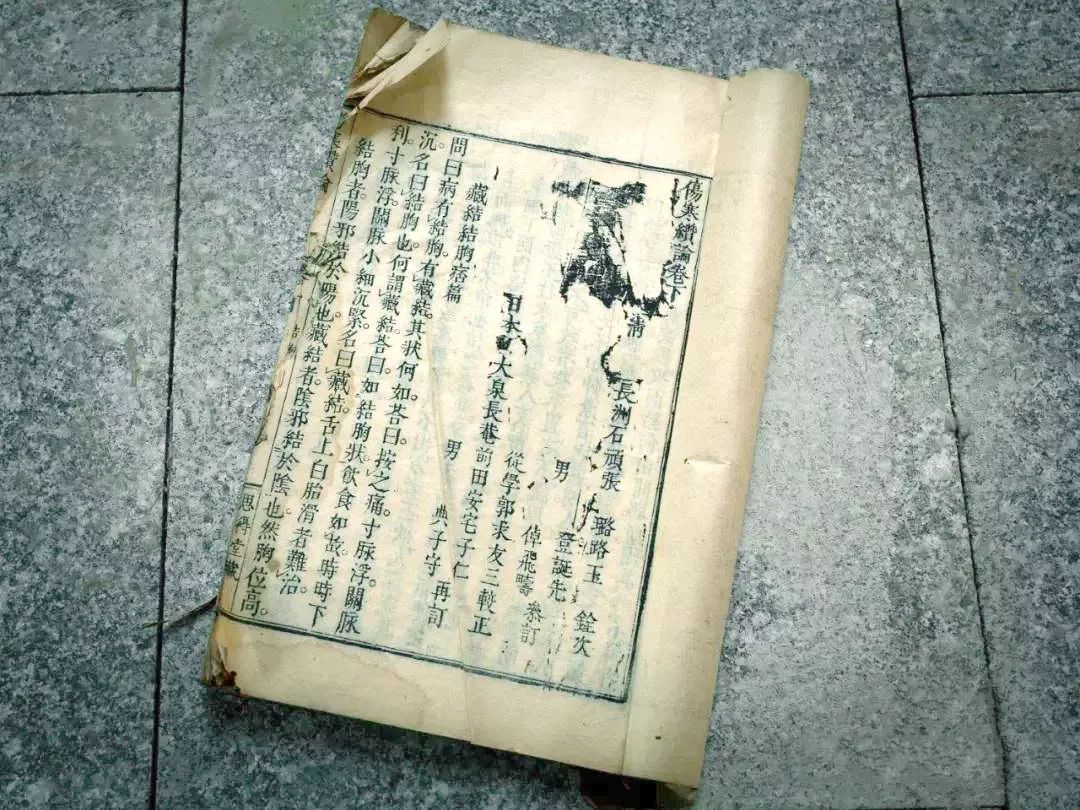 傷寒纘論卷下
清 長洲石頑張 璐路玉 詮次
男 登誕先
倬飛疇 參訂
從學郭求友三較正
日本 大泉長巷前田安宅子仁
男 典子守 再訂
藏結結胸痞篇
問曰病有結胸。有藏結。其狀何如。荅曰。按之痛。寸脉浮。關脉
沉。名曰結胸也。何謂藏結。荅曰。如結胸狀。飲食如故。時時下
利。寸脉浮。關脉小細沉緊。名曰藏結。舌上白胎滑者難治。
結胸者。陽邪結於陽也。藏結者。陰邪結於陰也。然胸位高。
思得堂藏